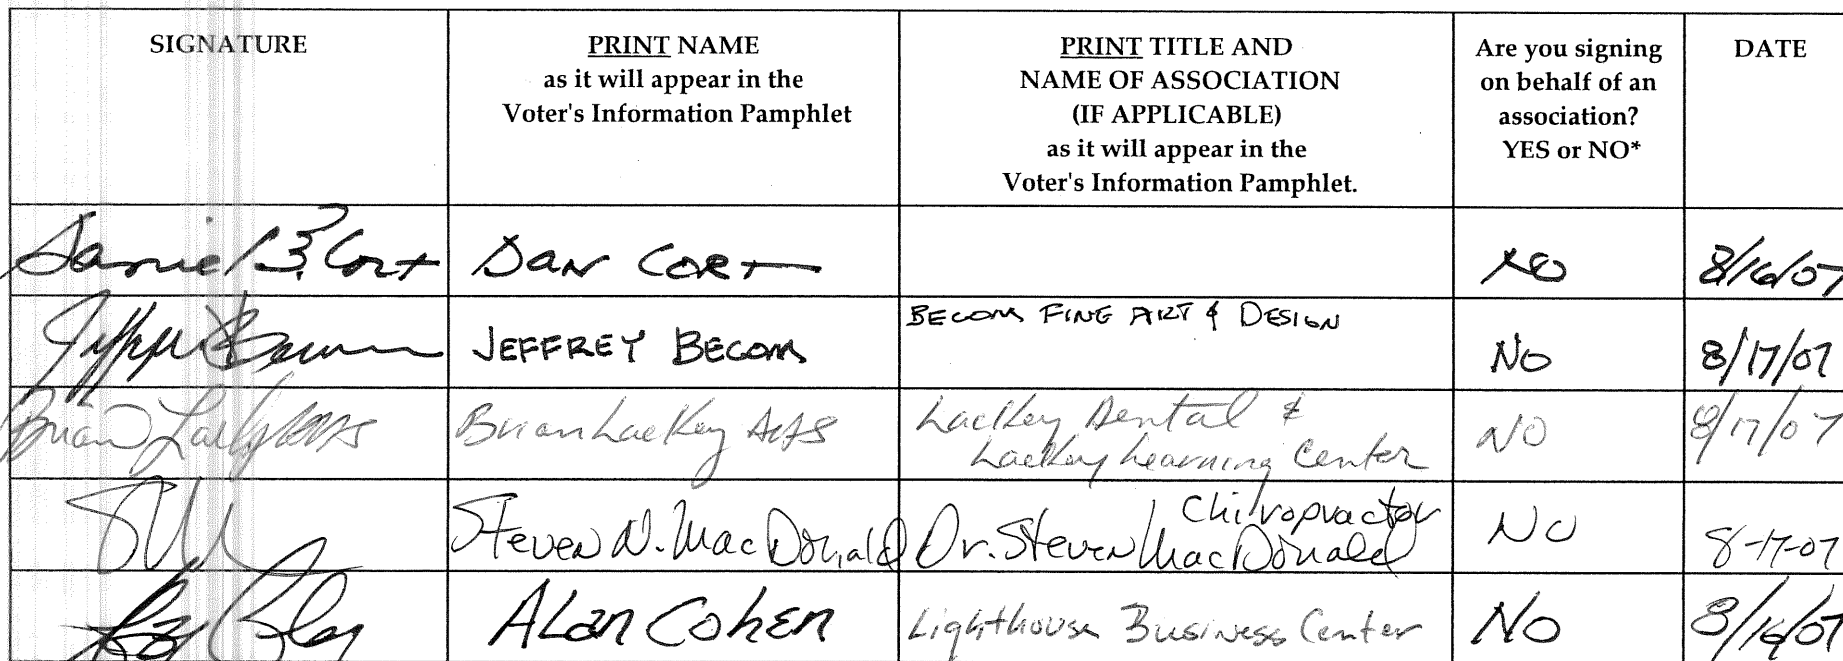 SIGNATURE
PRINT NAME
as it will appear in the
Voter's Information Pamphlet
PRINT TITLE AND
NAME OF ASSOCIATION
(IF APPLICABLE)
as it will appear in the
Voter's Information Pamphlet.
Are you signing
on behalf of an
association?
YES or NO*
DATE
Daniel B. Cort DAN CORT NO 8/16/07
JEFFREY BECOM BECOM FINE ART & DESIGN NO 8/17/07
Brian Lackey DDS Brian Lackey DDS Lackey Dental &
Lackey Learning Center NO 8/17/07
Steven N. MacDonald Chiropractor
Dr. Steven MacDonald NO 8-17-07
ALan CoHEN Lighthouse Business Center NO 8/16/07